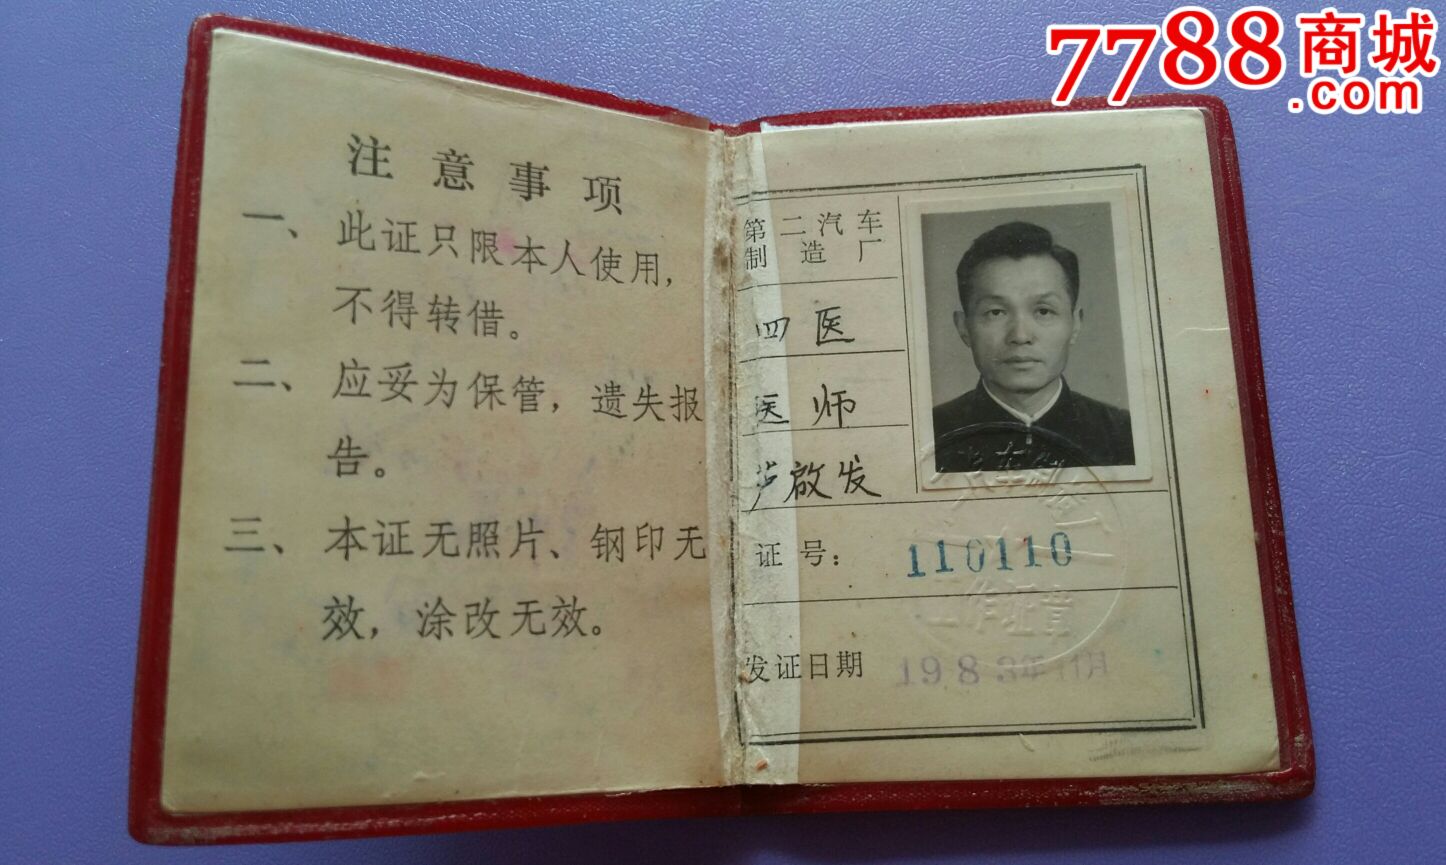 7788商城
.com
注意事项
一、此证只限本人使用,
不得转借。
二、应妥为保管,遗失报
告。
三、本证无照片、钢印无
效,涂改无效。
第二汽车
制造厂
四医
医师
启发
证号: 110110
发证日期 1983年11月
汽车制造厂
工作证章